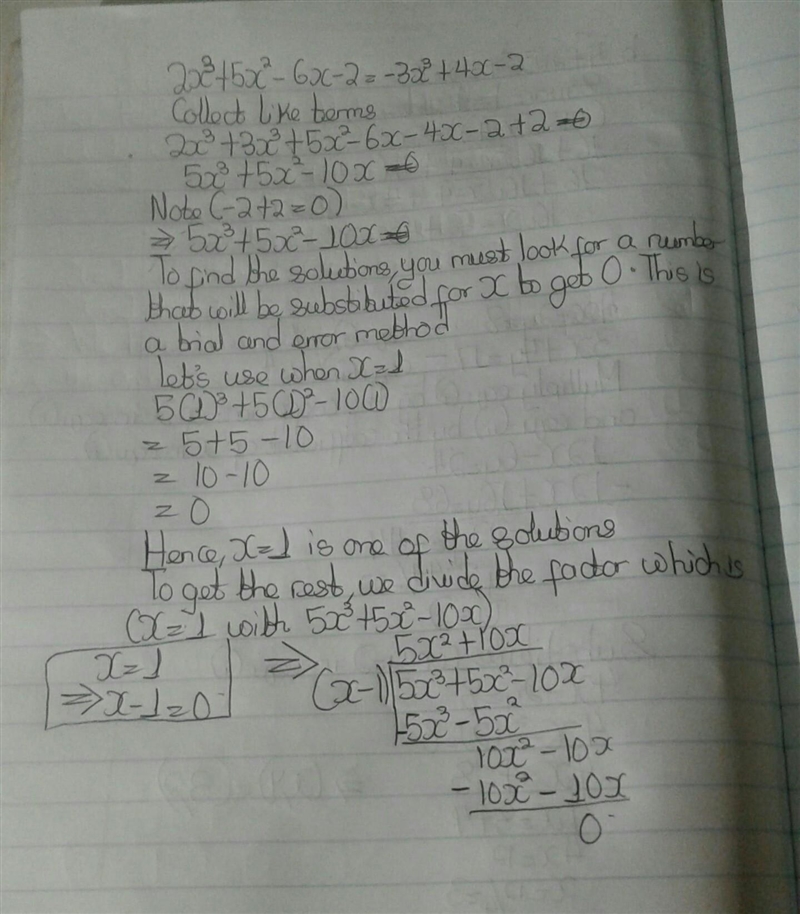 2x³+5x²-6x-2=-3x³+4x-2
Collect like terms
2x³+3x³+5x²-6x-4x-2+2=0
5x³+5x²-10x=0
Note(-2+2=0)
⇒ 5x³+5x²-10x=0
To find the solutions, you must look for a number
that will be substituted for x to get 0. This is
a trial and error method
let's use when x=1
5(1)³+5(1)²-10(1)
= 5+5-10
= 10-10
= 0
Hence, x=1 is one of the solutions
To get the rest, we divide the factor which is
(x=1 with 5x³+5x²-10x)
x=1
⇒x-1=0
⇒ 5x²+10x
(x-1)√5x³+5x²-10x
-5x³-5x²
10x²-10x
-10x²-10x
0